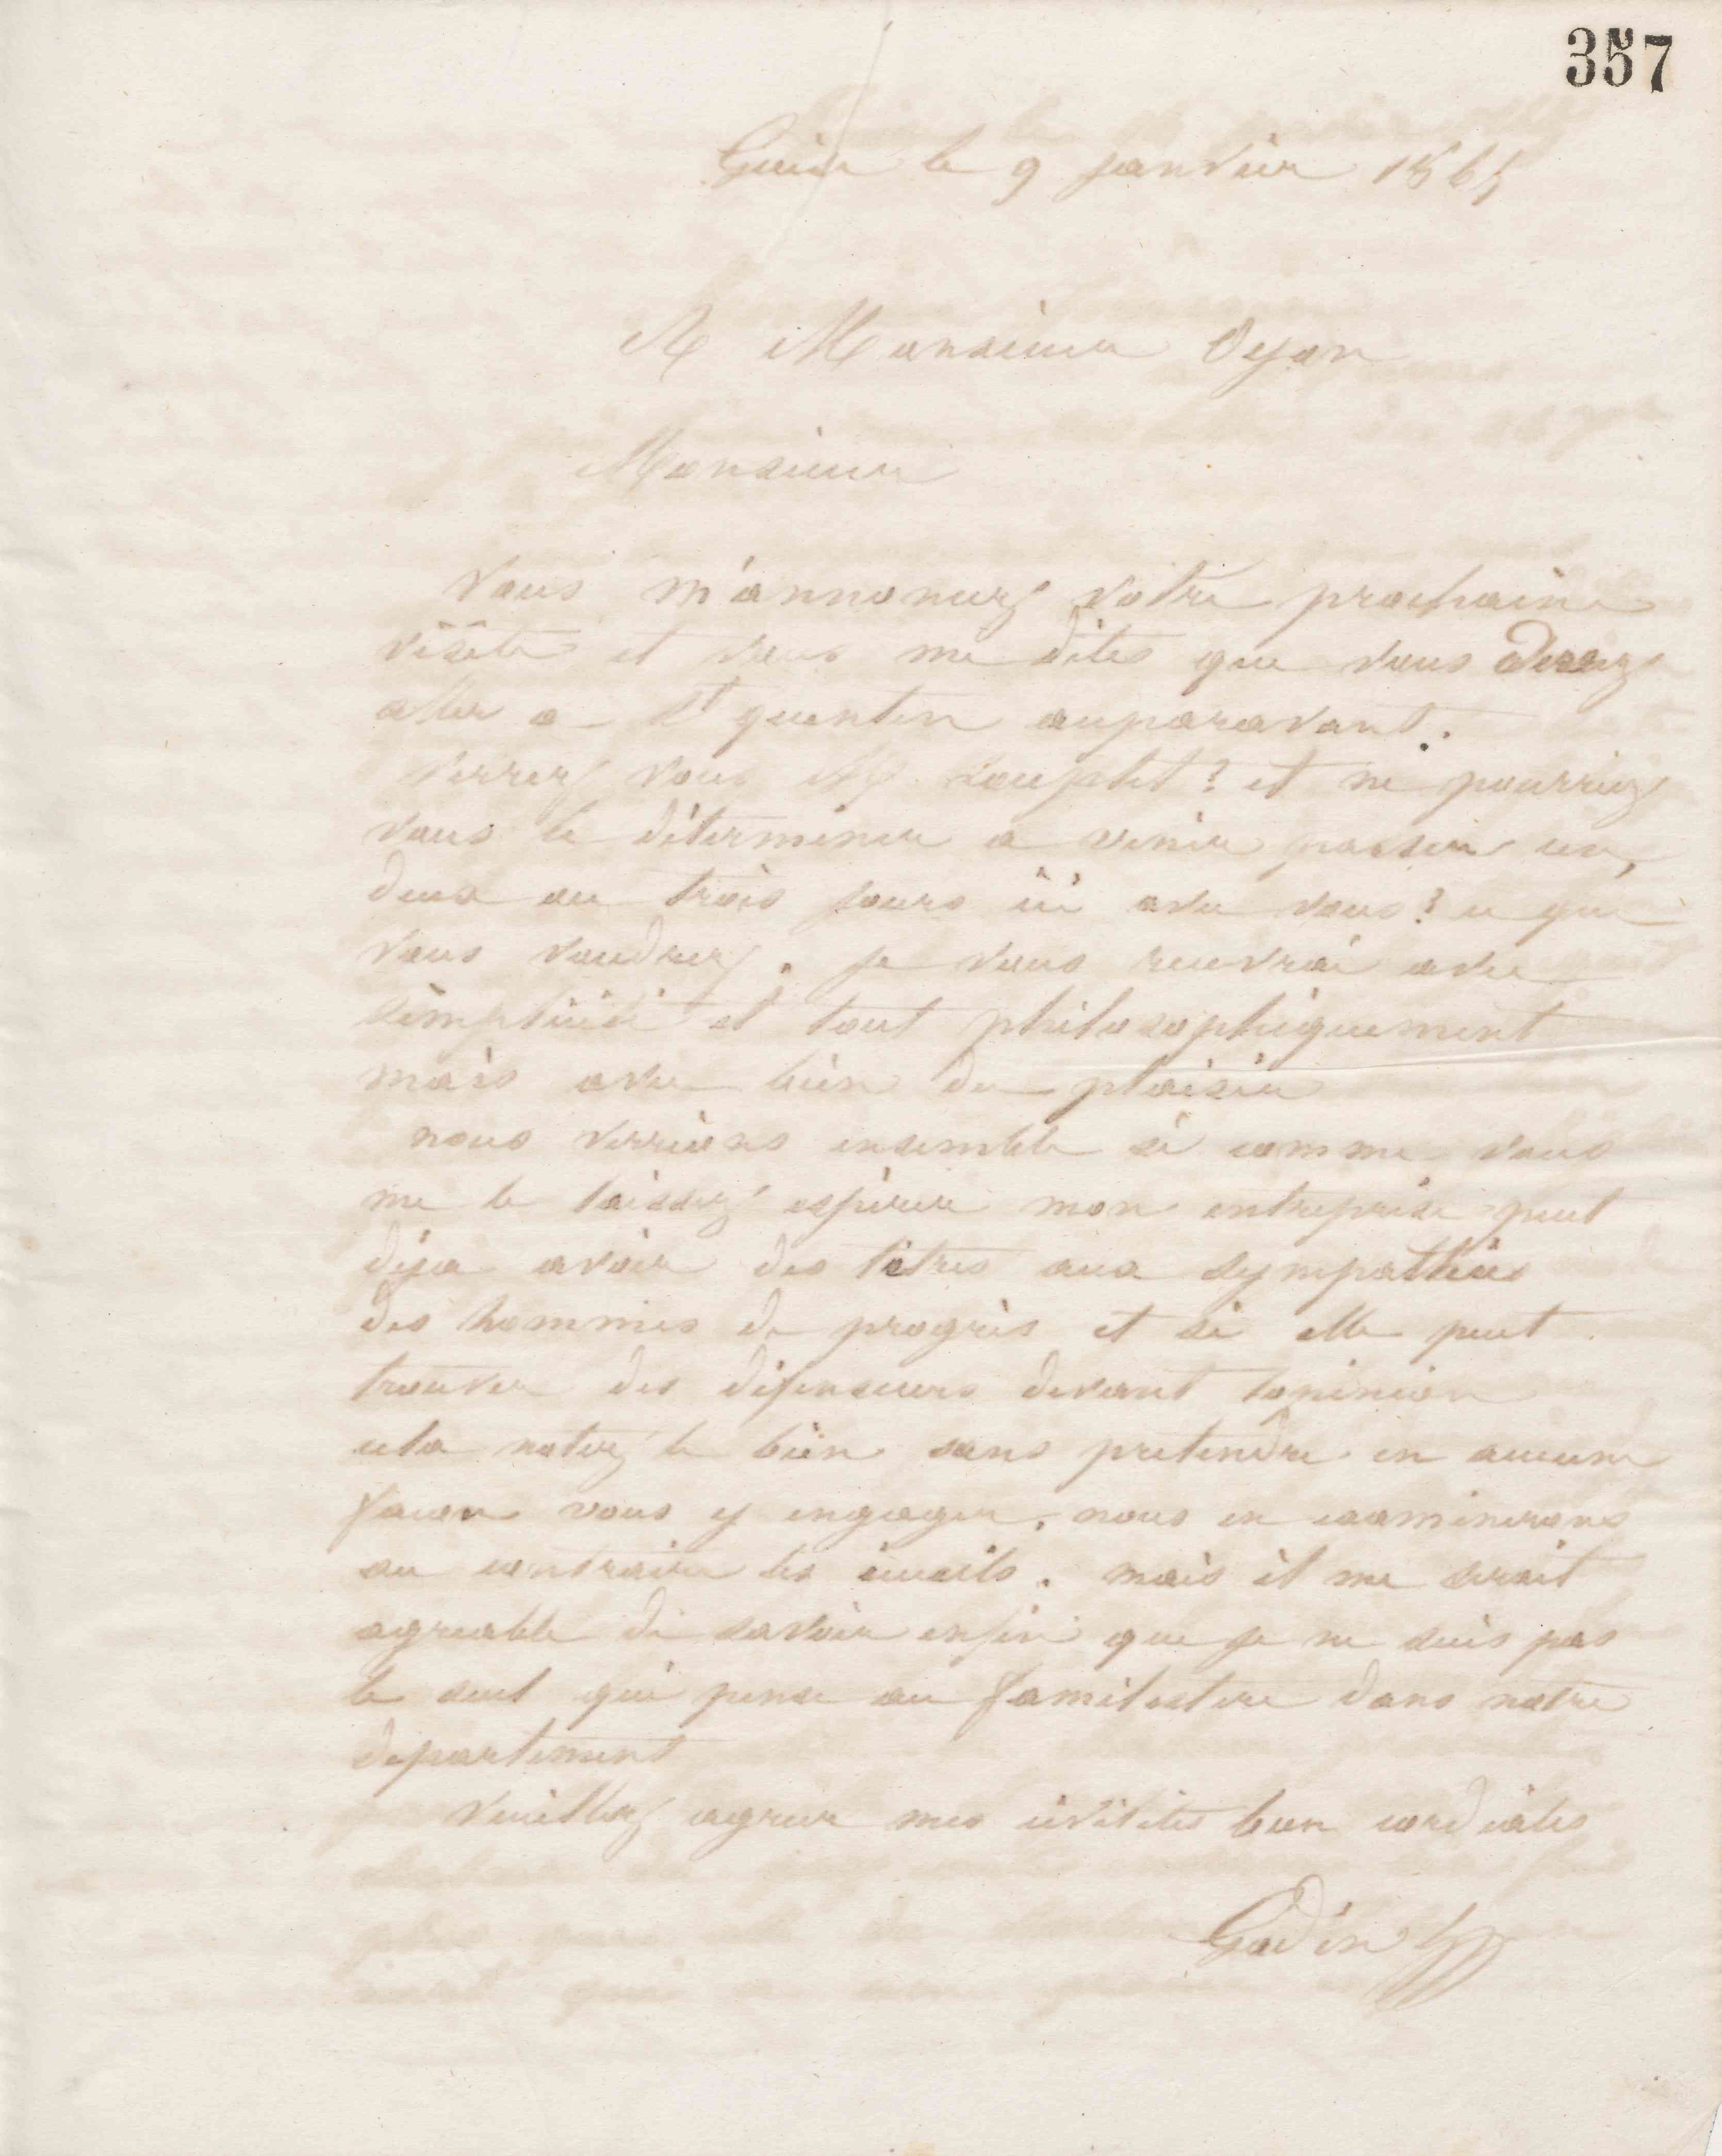 357
Guise le 9 janvier 1865
A Monsieur Oyon
Monsieur
Vous m'annoncez votre prochaine
visite et vous me dites que vous devez
aller a St quentin auparavant.
verrez vous Mr souplet ? et ne pourriez
vous le déterminer a venir passer un,
deux ou trois jours ici avec vous ? ce que
vous voudrez. je vous recevrai avec
simplicité et tout philosophiquement
mais avec bien du plaisir
nous verrions ensemble si comme vous
me le laissez espérer mon entreprise peut
déja avoir des titres aux sympathies
des hommes de progrès et si elle peut
trouver des défenseurs devant l'opinion
cela notez le bien sans pretendre en aucune
facon vous y engager. nous en examinerons
au contraire les écueils. mais il me serait
agreable de savoir enfin que je ne suis pas
le seul qui pense au familistere dans notre
departement
Veuillez agreer mes civilités bien cordiales
Godin